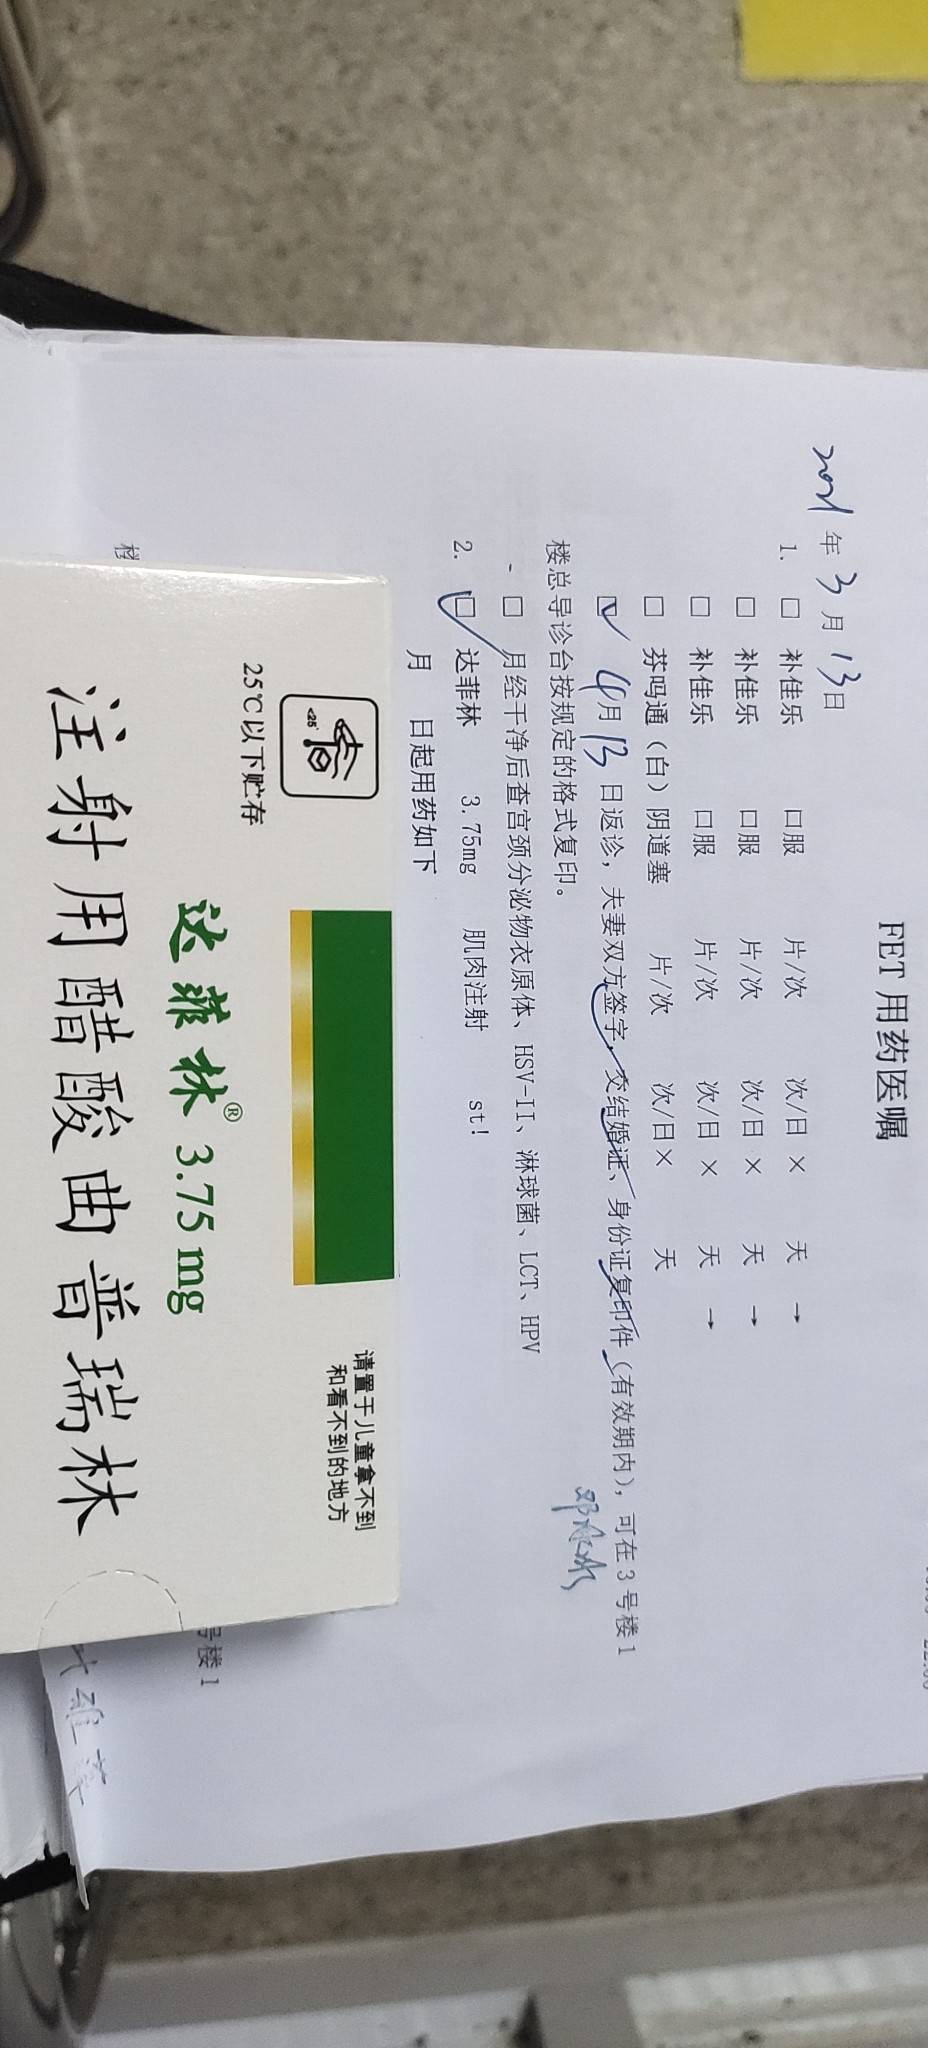 FET 用药医嘱
2021 年 3 月 13 日
1. □ 补佳乐 口服 片/次 次/日 × 天 →
□ 补佳乐 口服 片/次 次/日 × 天 →
□ 补佳乐 口服 片/次 次/日 × 天 →
□ 芬吗通（白）阴道塞 片/次 次/日 × 天
☑ 4月 13 日返诊，夫妻双方签字，交结婚证、身份证复印件（有效期内），可在 3 号楼 1
楼总导诊台按规定的格式复印。
- □ 月经干净后查宫颈分泌物衣原体、HSV-II、淋球菌、LCT、HPV
2. ☑ 达菲林 3.75mg 肌肉注射 st!
月 日起用药如下
号楼 1
楼
请置于儿童拿不到
和看不到的地方
<25°
25℃以下贮存
达菲林® 3.75mg
注射用醋酸曲普瑞林